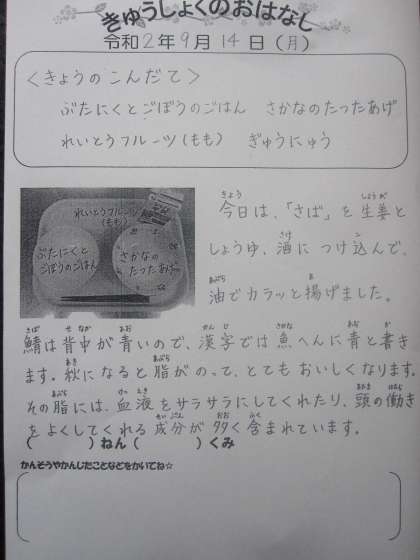 きゅうしょくのおはなし
令和2年9月14日(月)
<きょうのこんだて>
ぶたにくとごぼうのごはん さかなのたつたあげ
れいとうフルーツ(もも) ぎゅうにゅう
れいとうフルーツ
(もも)
ぶたにくと
ごぼうのごはん
さかなの
たつたあげ
今日は、「さば」を生姜と
しょうゆ、酒につけ込んで、
油でカラッと揚げました。
鯖は背中が青いので、漢字では魚へんに青と書き
ます。秋になると脂がのって、とてもおいしくなります。
その脂には、血液をサラサラにしてくれたり、頭の働き
をよくしてくれる成分が多く含まれています。
( )ねん( )くみ
かんそうやかんじたことなどをかいてね☆